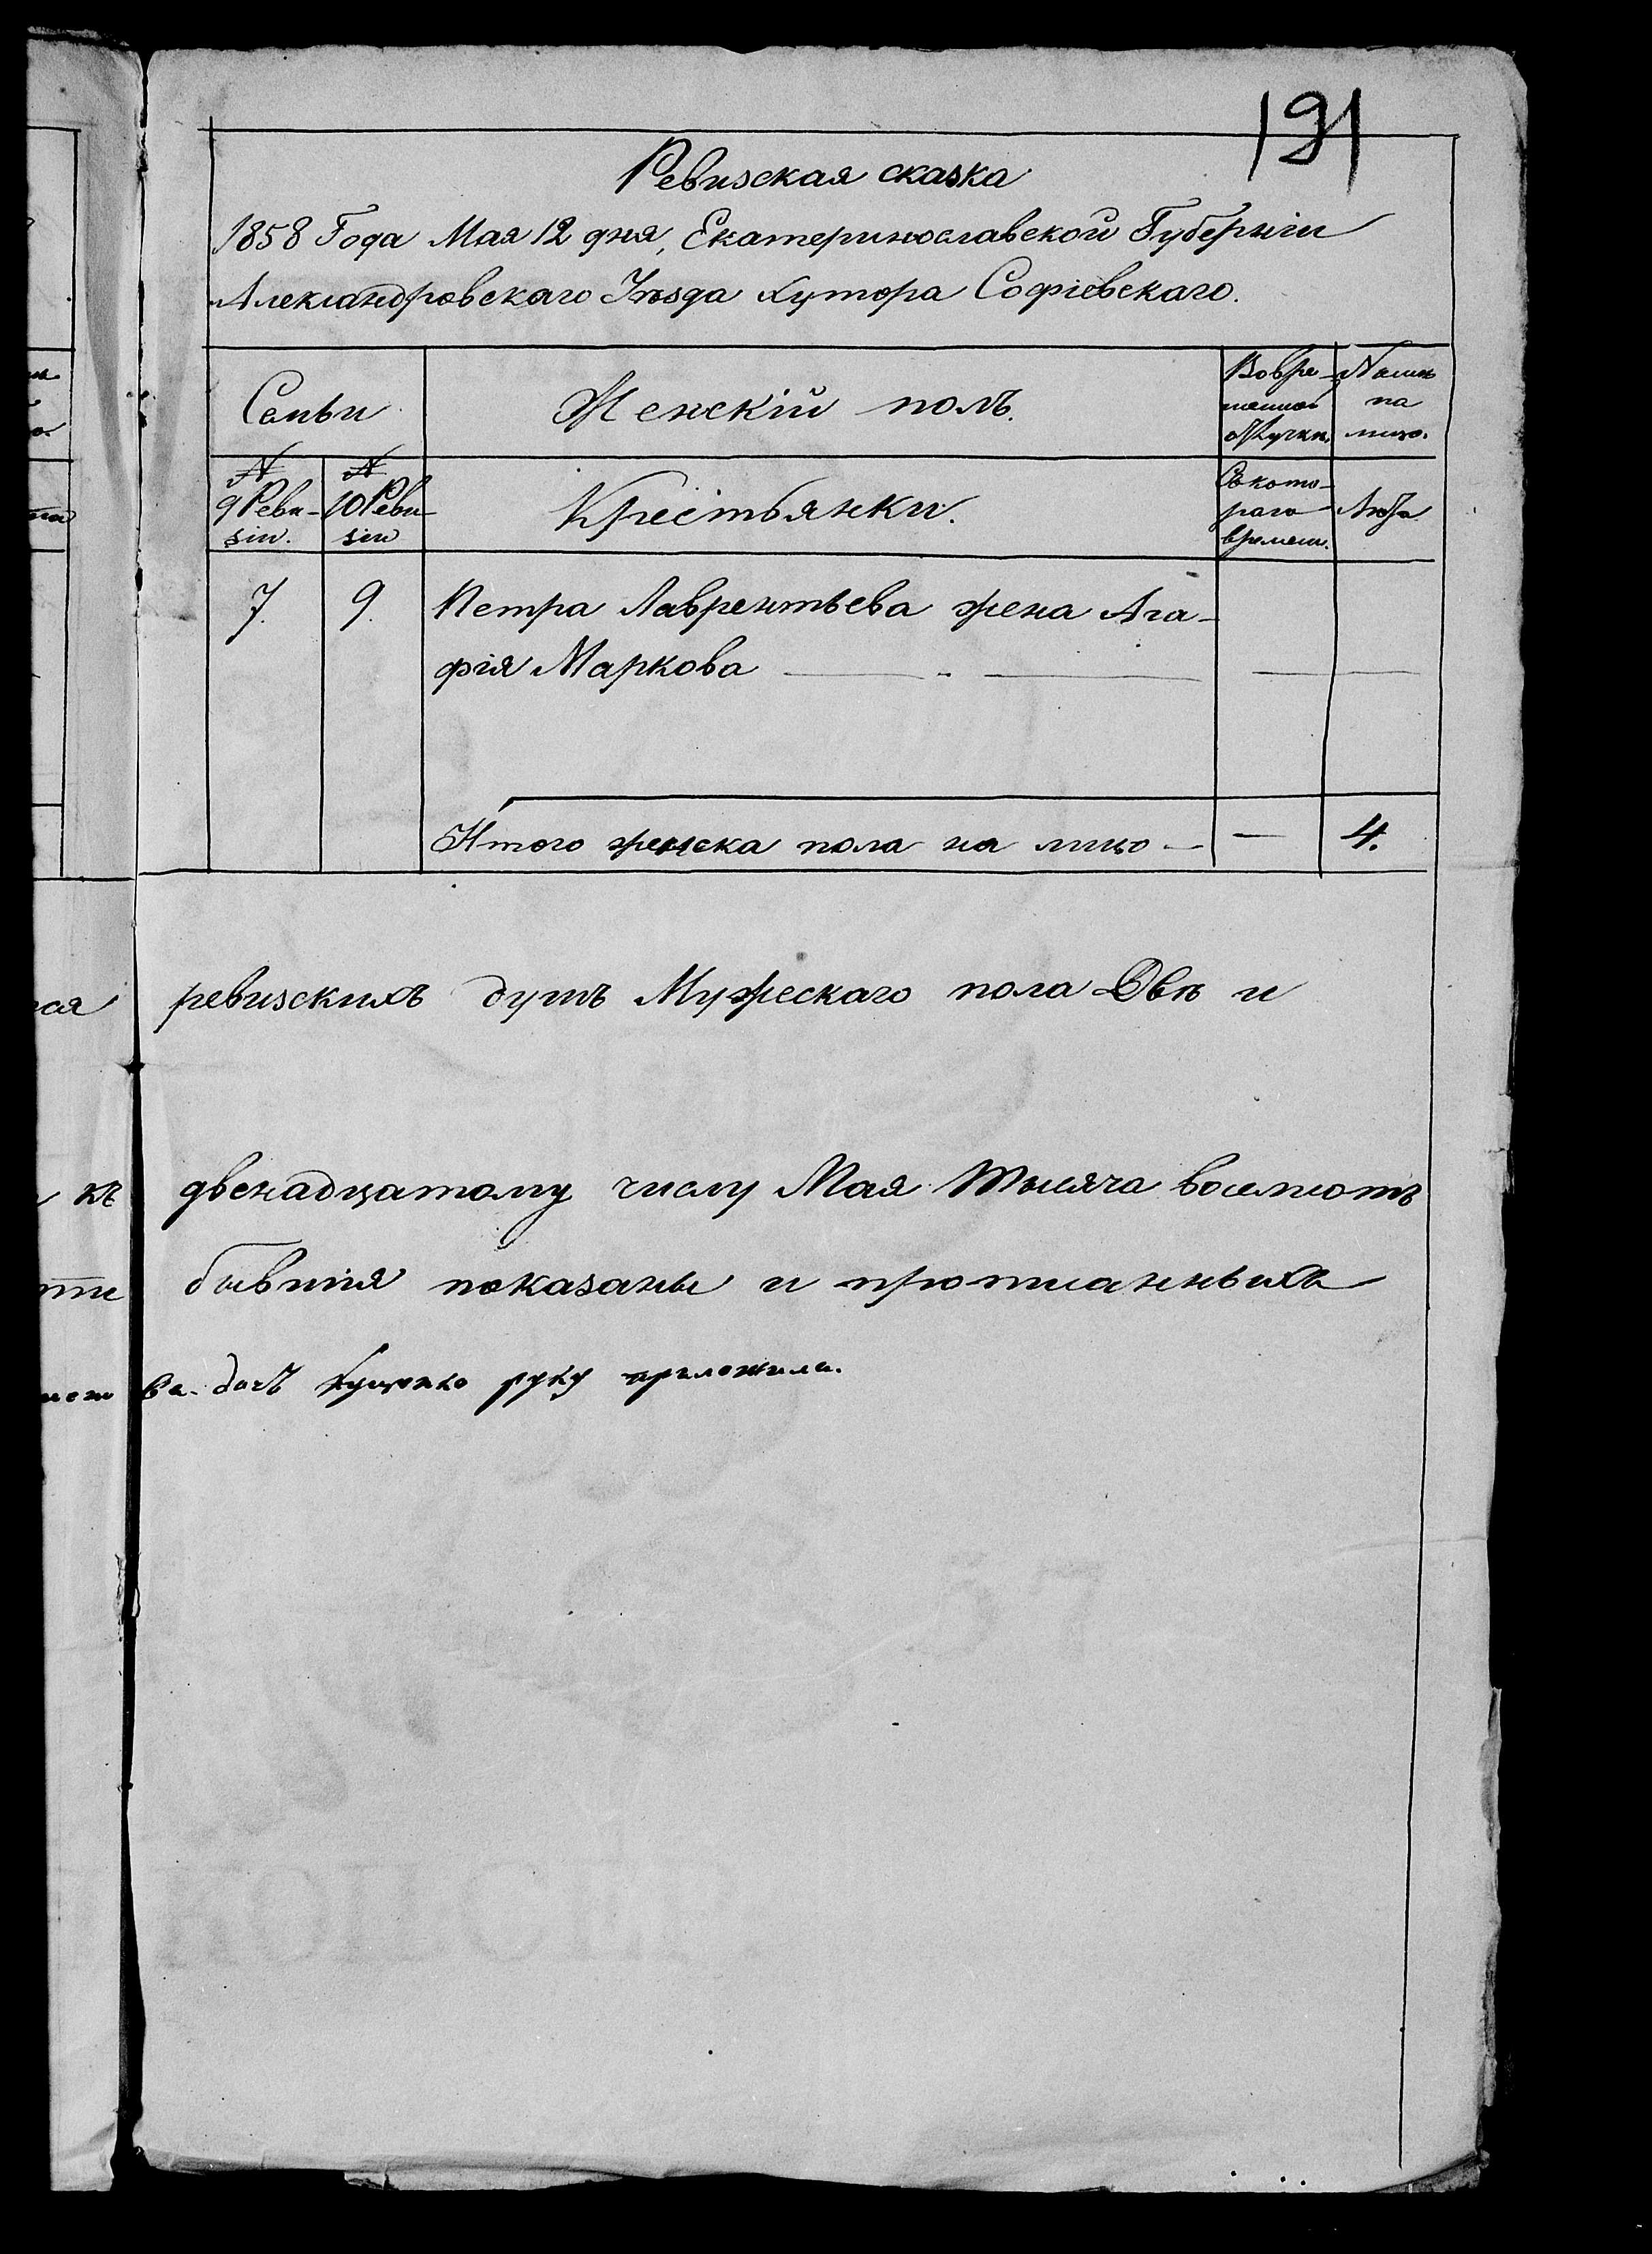 191
Ревизская сказка
1858 Года Мая 12 дня, Екатеринославской Губерніи
Александровскаго Уѣзда Хутора Софіевскаго.
Семьи
Женскій полъ.
Вовре-
менной
отлучки.
Нынѣ
на
лицо.
№
9 Реви-
зіи.
№
10 Реви-
зіи
Крестьянки.
Съ кото-
раго
времени.
Лѣта
7.
9.
Петра Лаврентьева жена Ага-
фія Маркова
Итого женска пола на лицо — — 4.
ревизскихъ душъ Мужескаго пола Двѣ и
къ двенадцатому числу Мая Тысяча восемсотъ
бывшія показаны и прописанныхъ
руку приложила.